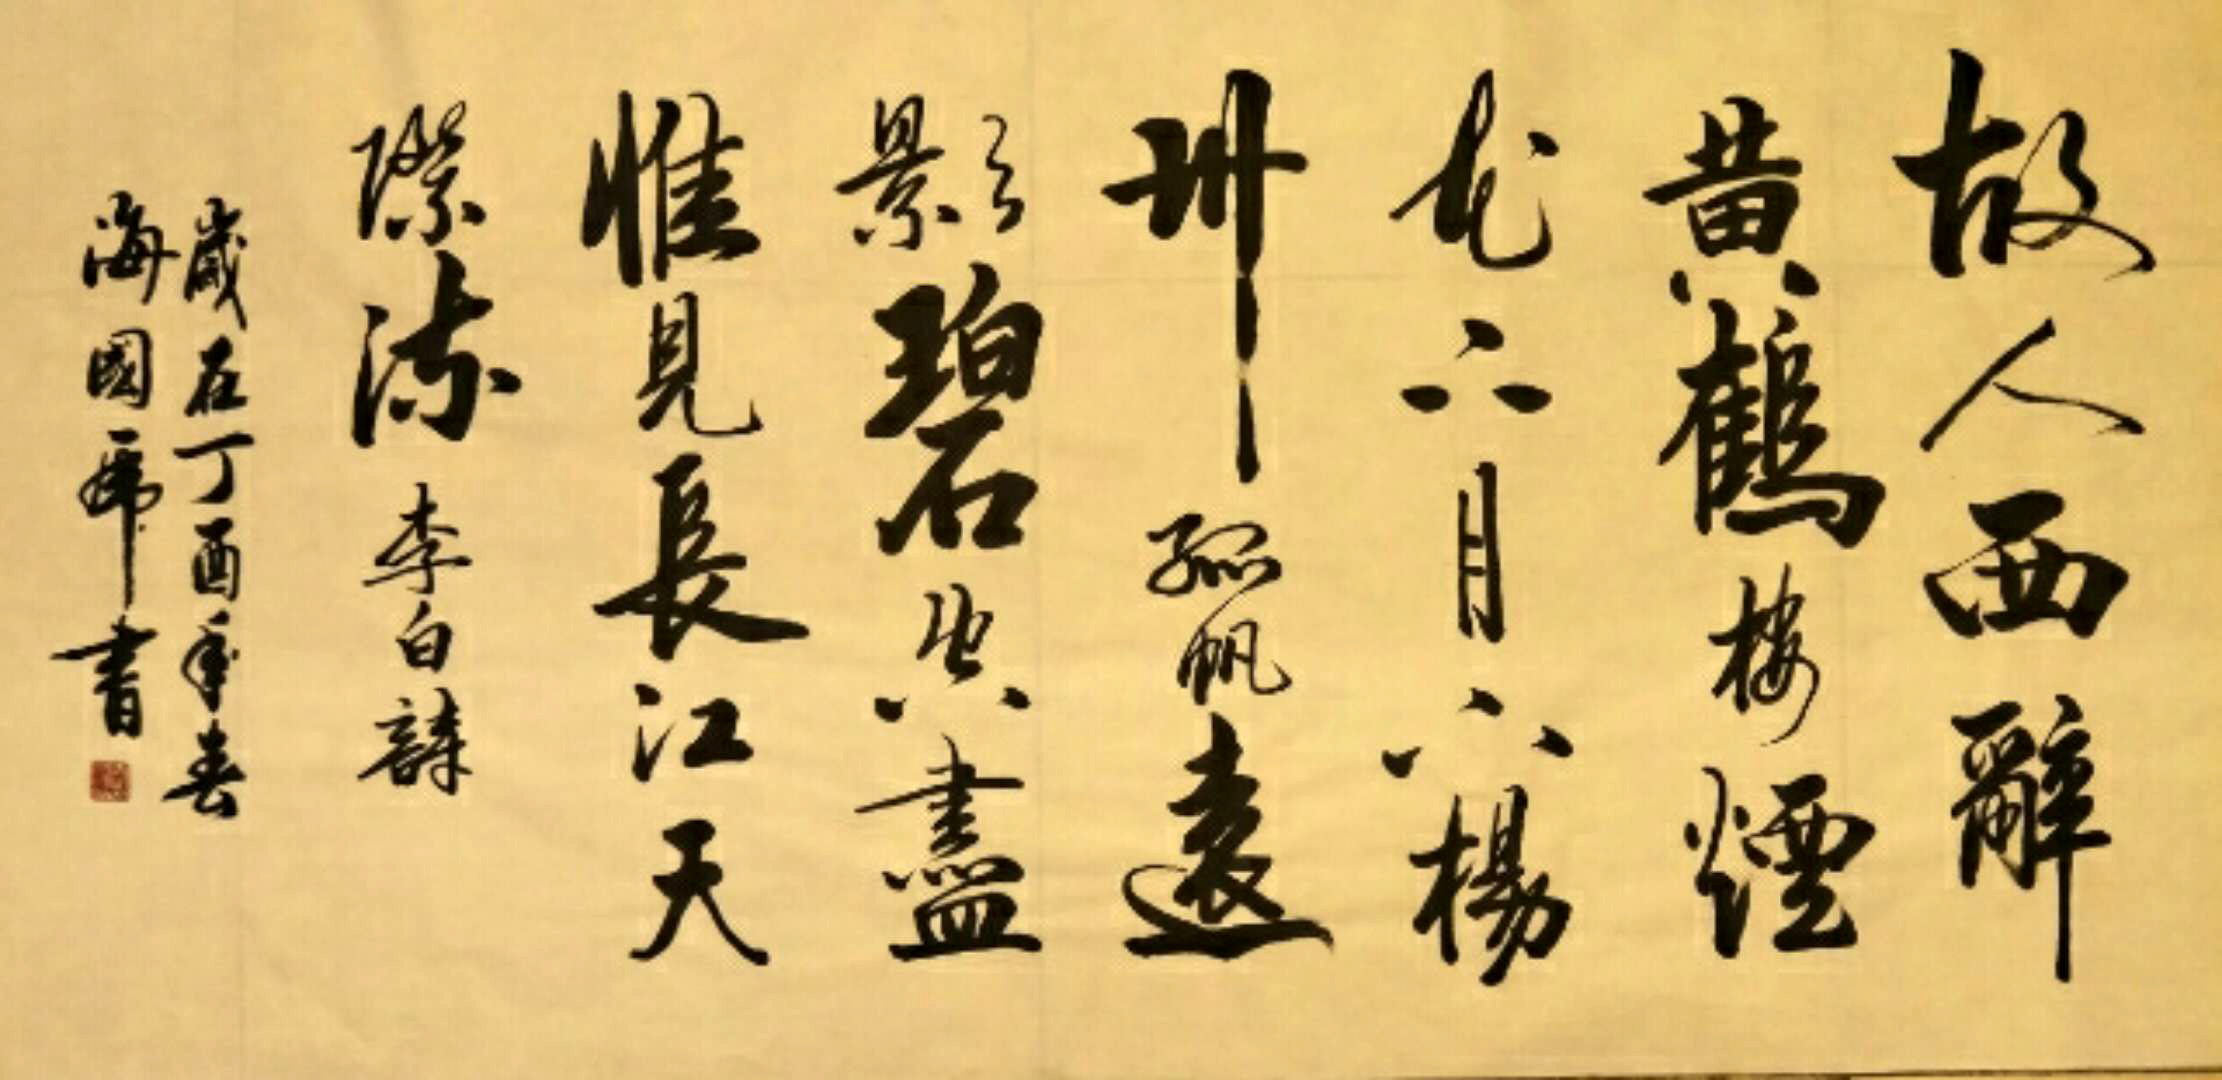 故人西辭
黃鶴樓煙
花三月下楊
州孤帆遠
影碧空盡
惟見長江天
際流 李白詩
歲在丁酉年春
海國書